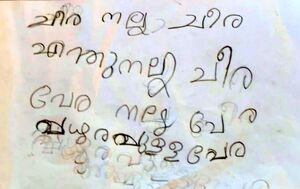 ചീര നല്ല ചീര
എന്തുനല്ല ചീര
പേര നല്ല പേര
മധുരമുള്ള പേര